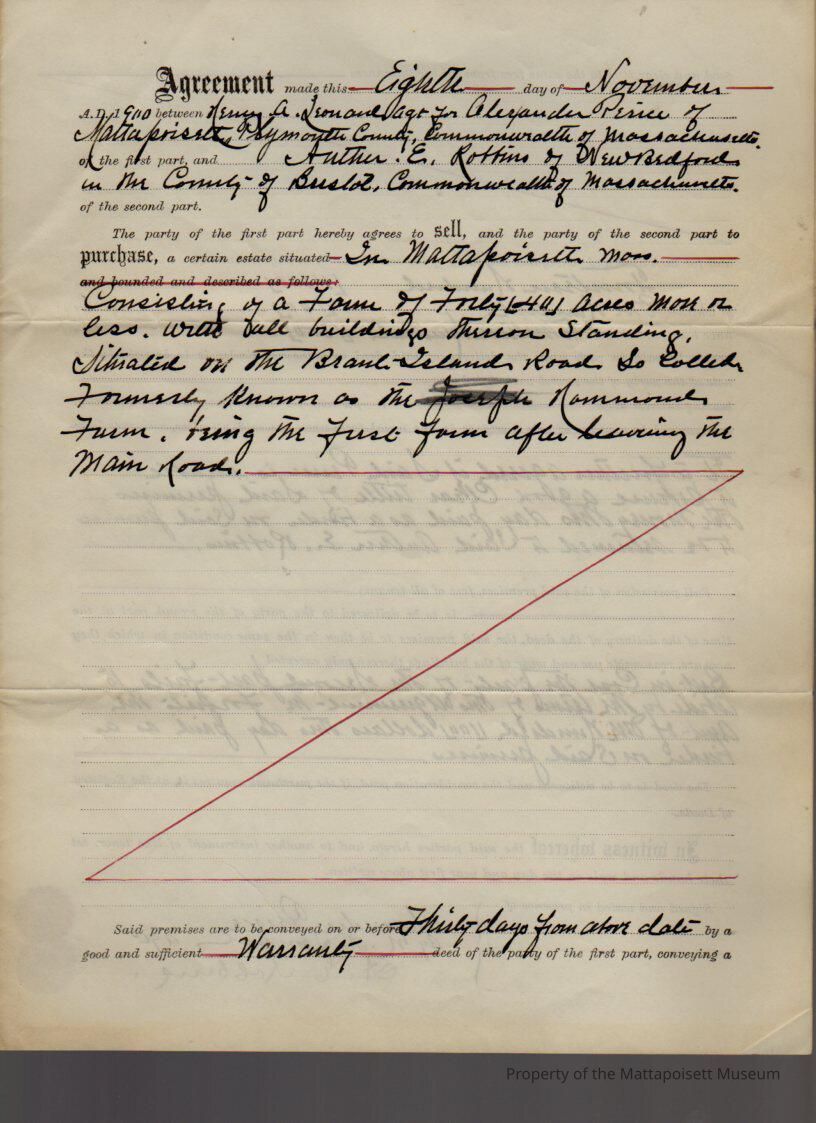 Agreement made this Eighth day of November
A.D. 1900 between Henry A. Leonard Agt for Alexander Peirce of
Mattapoisett, Plymouth County, Commonwealth of Massachusetts.
of the first part, and Auther. E. Robbins of New Bedford
in the County of Bristol, Commonwealth of Massachusetts.
of the second part.
The party of the first part hereby agrees to sell, and the party of the second part to
purchase, a certain estate situated In Mattapoisett Mass.
and bounded and described as follows:
Consisting of a Farm of Forty (40) Acres more or
less. with all buildings thereon Standing.
Situated on the Brant Island Road So Called
Formerly Known as the Joseph Hammond
Farm. being the first farm after leaving the
Main Road.
Said premises are to be conveyed on or before Thirty days from above date by a
good and sufficient Warranty deed of the party of the first part, conveying a
Property of the Mattapoisett Museum